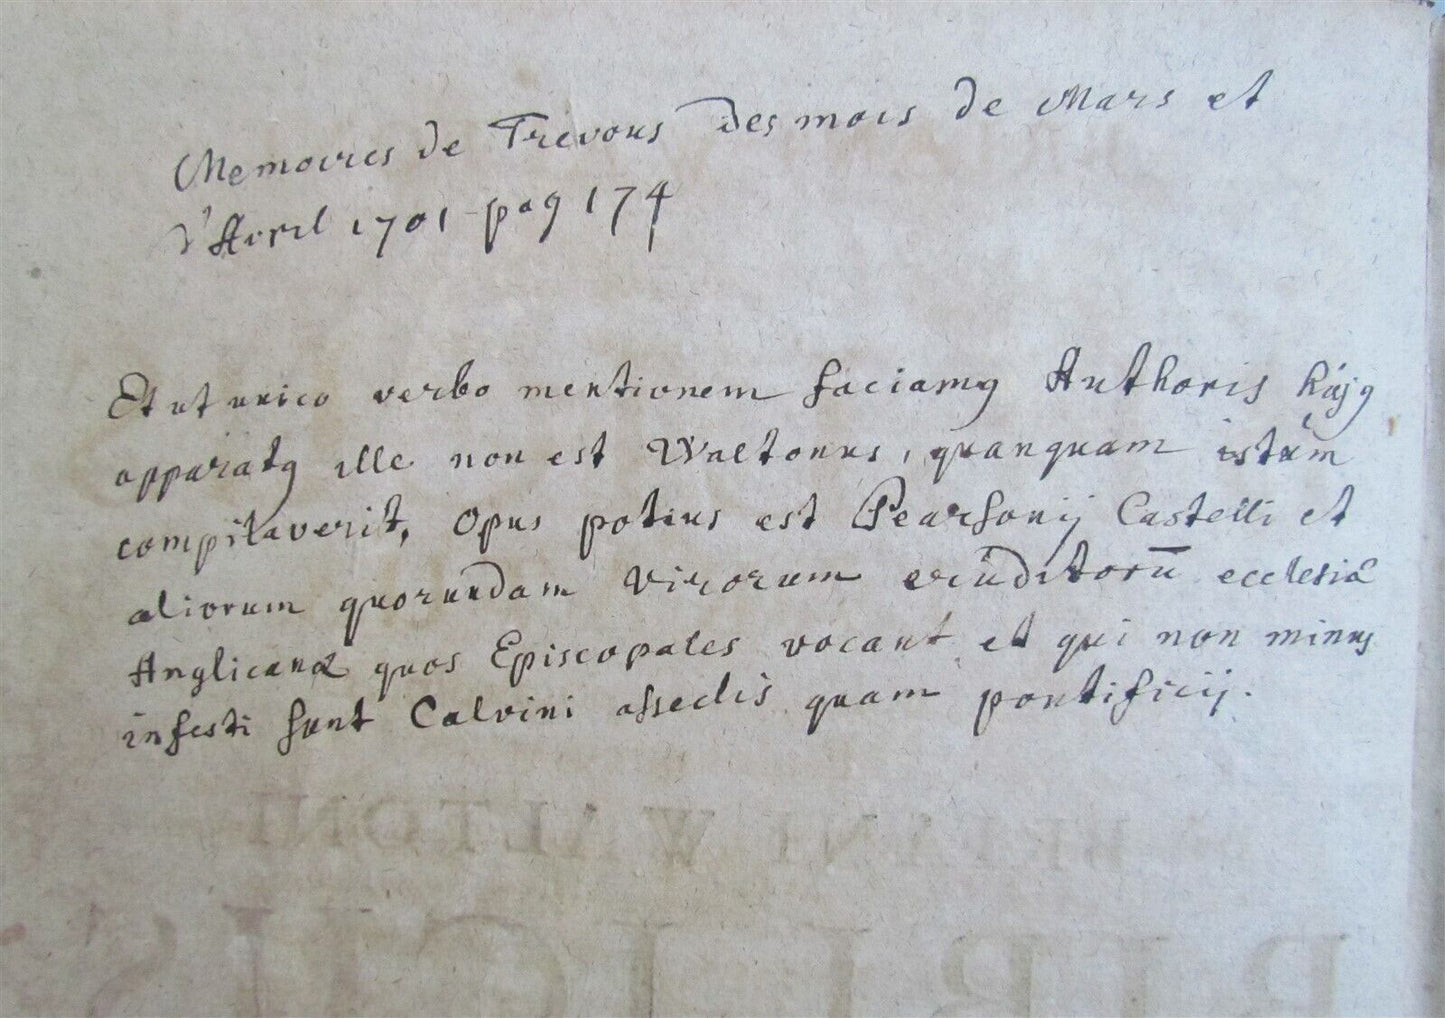 Memoires de Trevous des mois de Mars et
d'Avril 1701 pag 174
Et ut unico verbo mentionem faciamꝰ Authoris hújꝰ
apparatꝰ ille non est Waltonus, quanquam istúm
compilaverit, Opus potius est Pearsonij Castelli et
aliorum quorundam virorum erúditorū ecclesiæ
Anglicanæ quos Episcopales vocant et qui non minus
infesti sunt Calvini asseclis quam pontificij.
BRIANI WALTONI